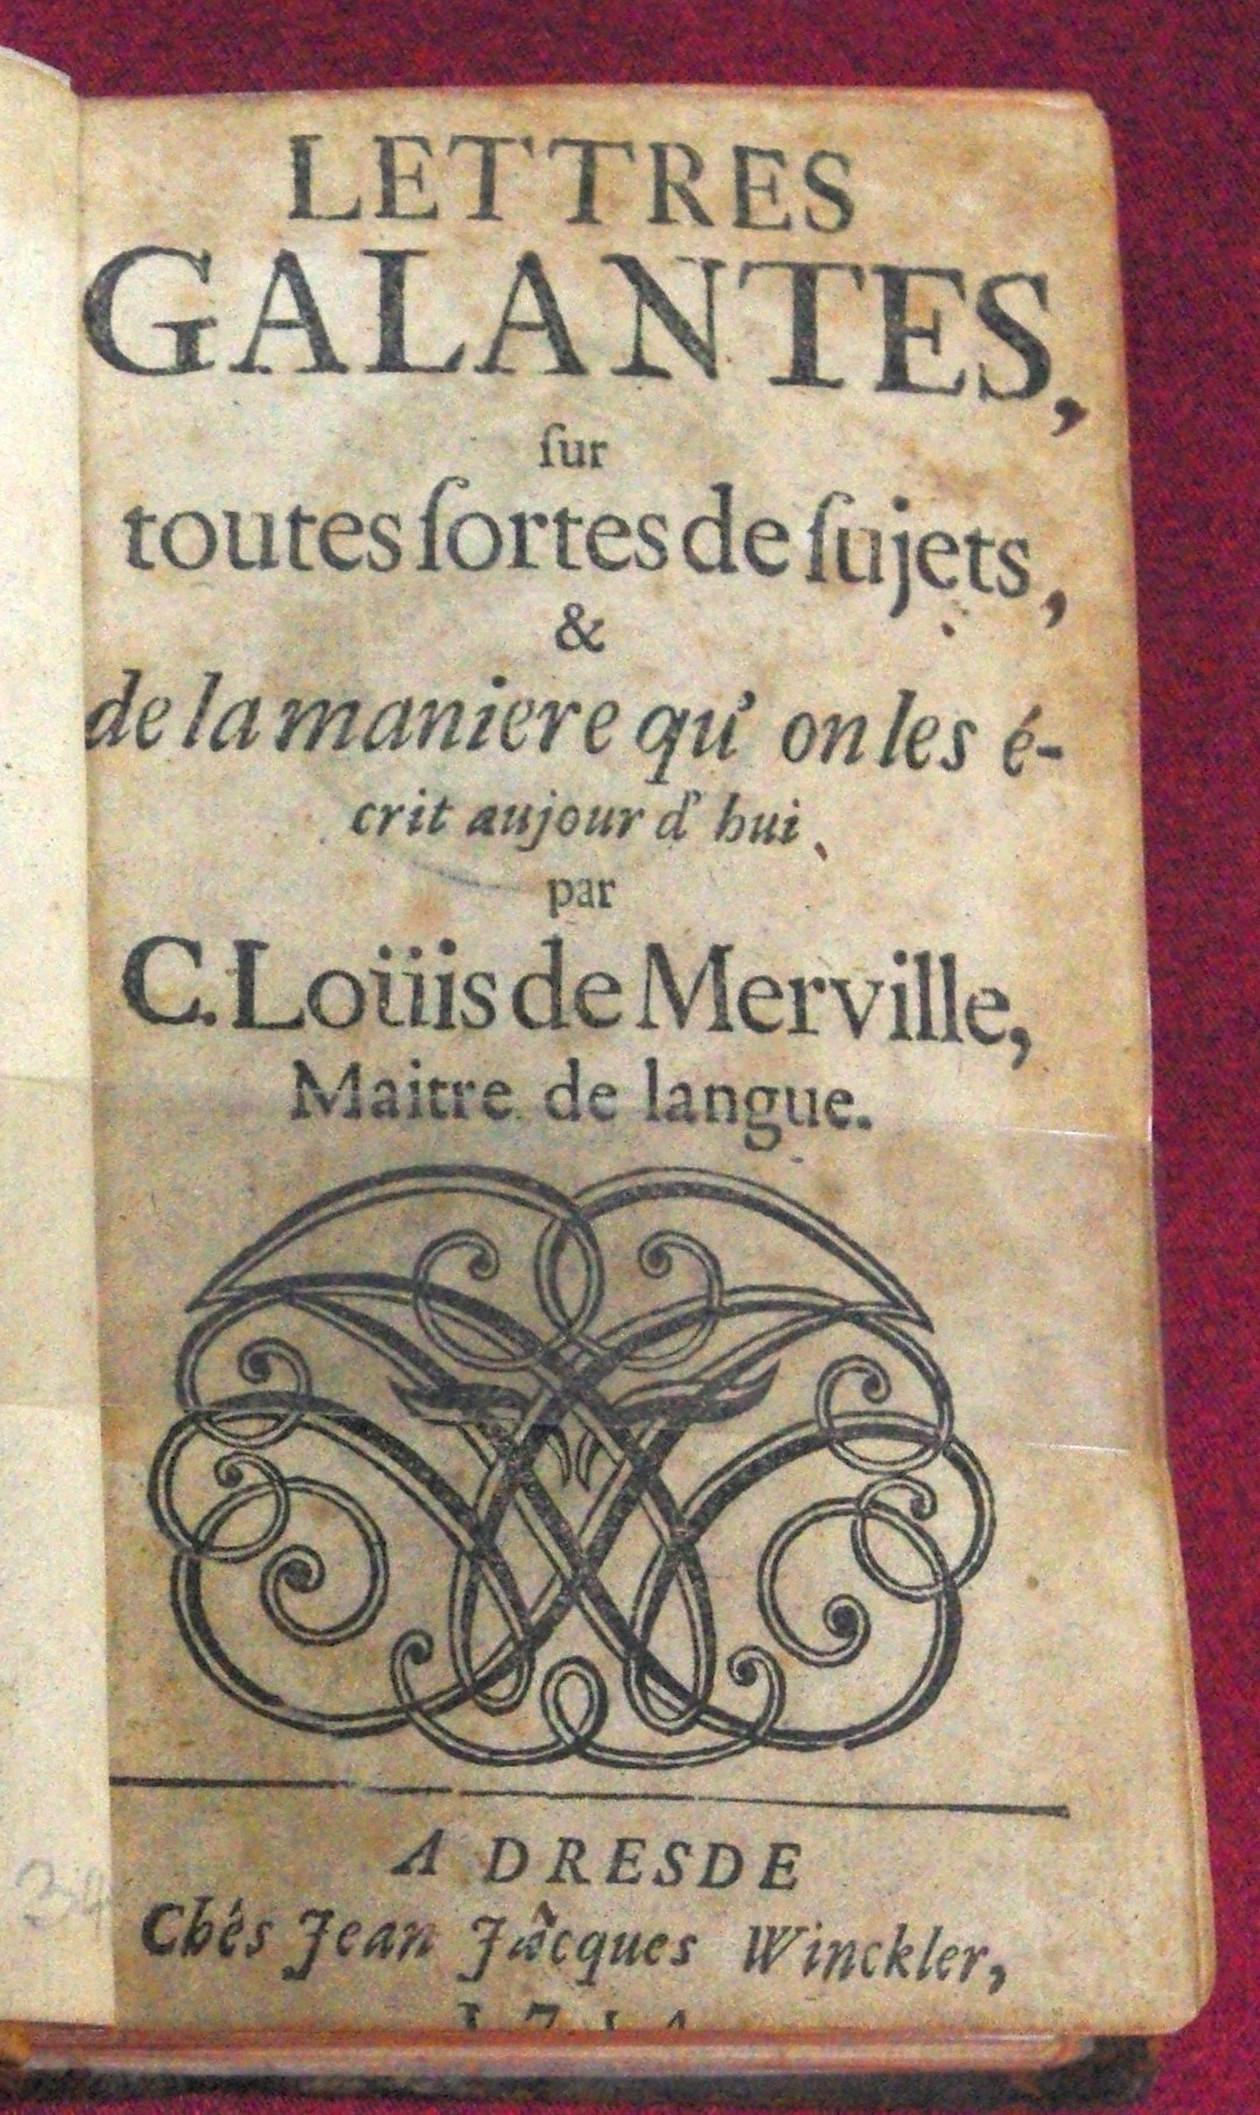 LETTRES
GALANTES,
ſur
toutes ſortes de ſujets,
&
de la maniere qu' on les é-
crit aujour d' hui,
par
C. Loüis de Merville,
Maitre de langue.
A DRESDE
Chés Jean Jacques Winckler,
34